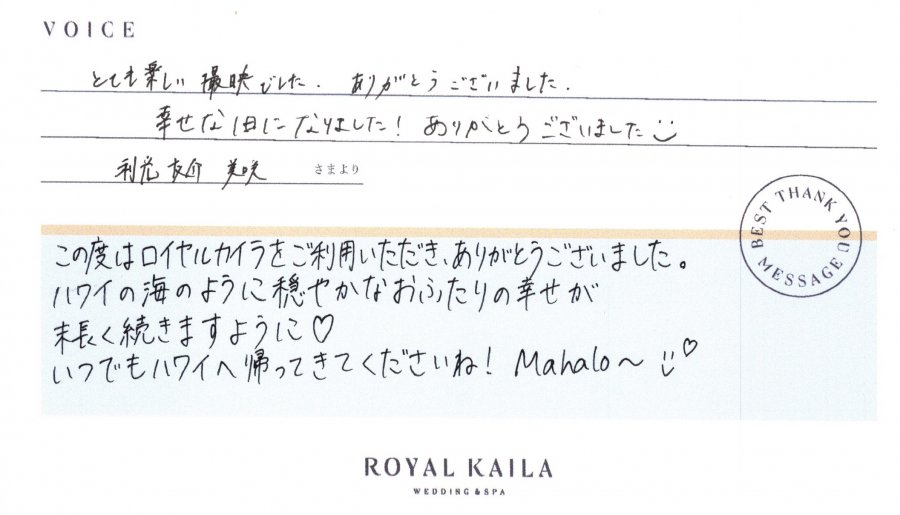 VOICE
とても楽しい撮映でした. ありがとうございました.
幸せな1日になりました! ありがとうございました
利光 友介 美咲 さまより
BEST THANK YOU MESSAGE
この度はロイヤルカイラをご利用いただき、ありがとうございました。
ハワイの海のように穏やかなおふたりの幸せが
末長く続きますように♡
いつでもハワイへ帰ってきてくださいね! Mahalo〜
ROYAL KAILA
WEDDING & SPA